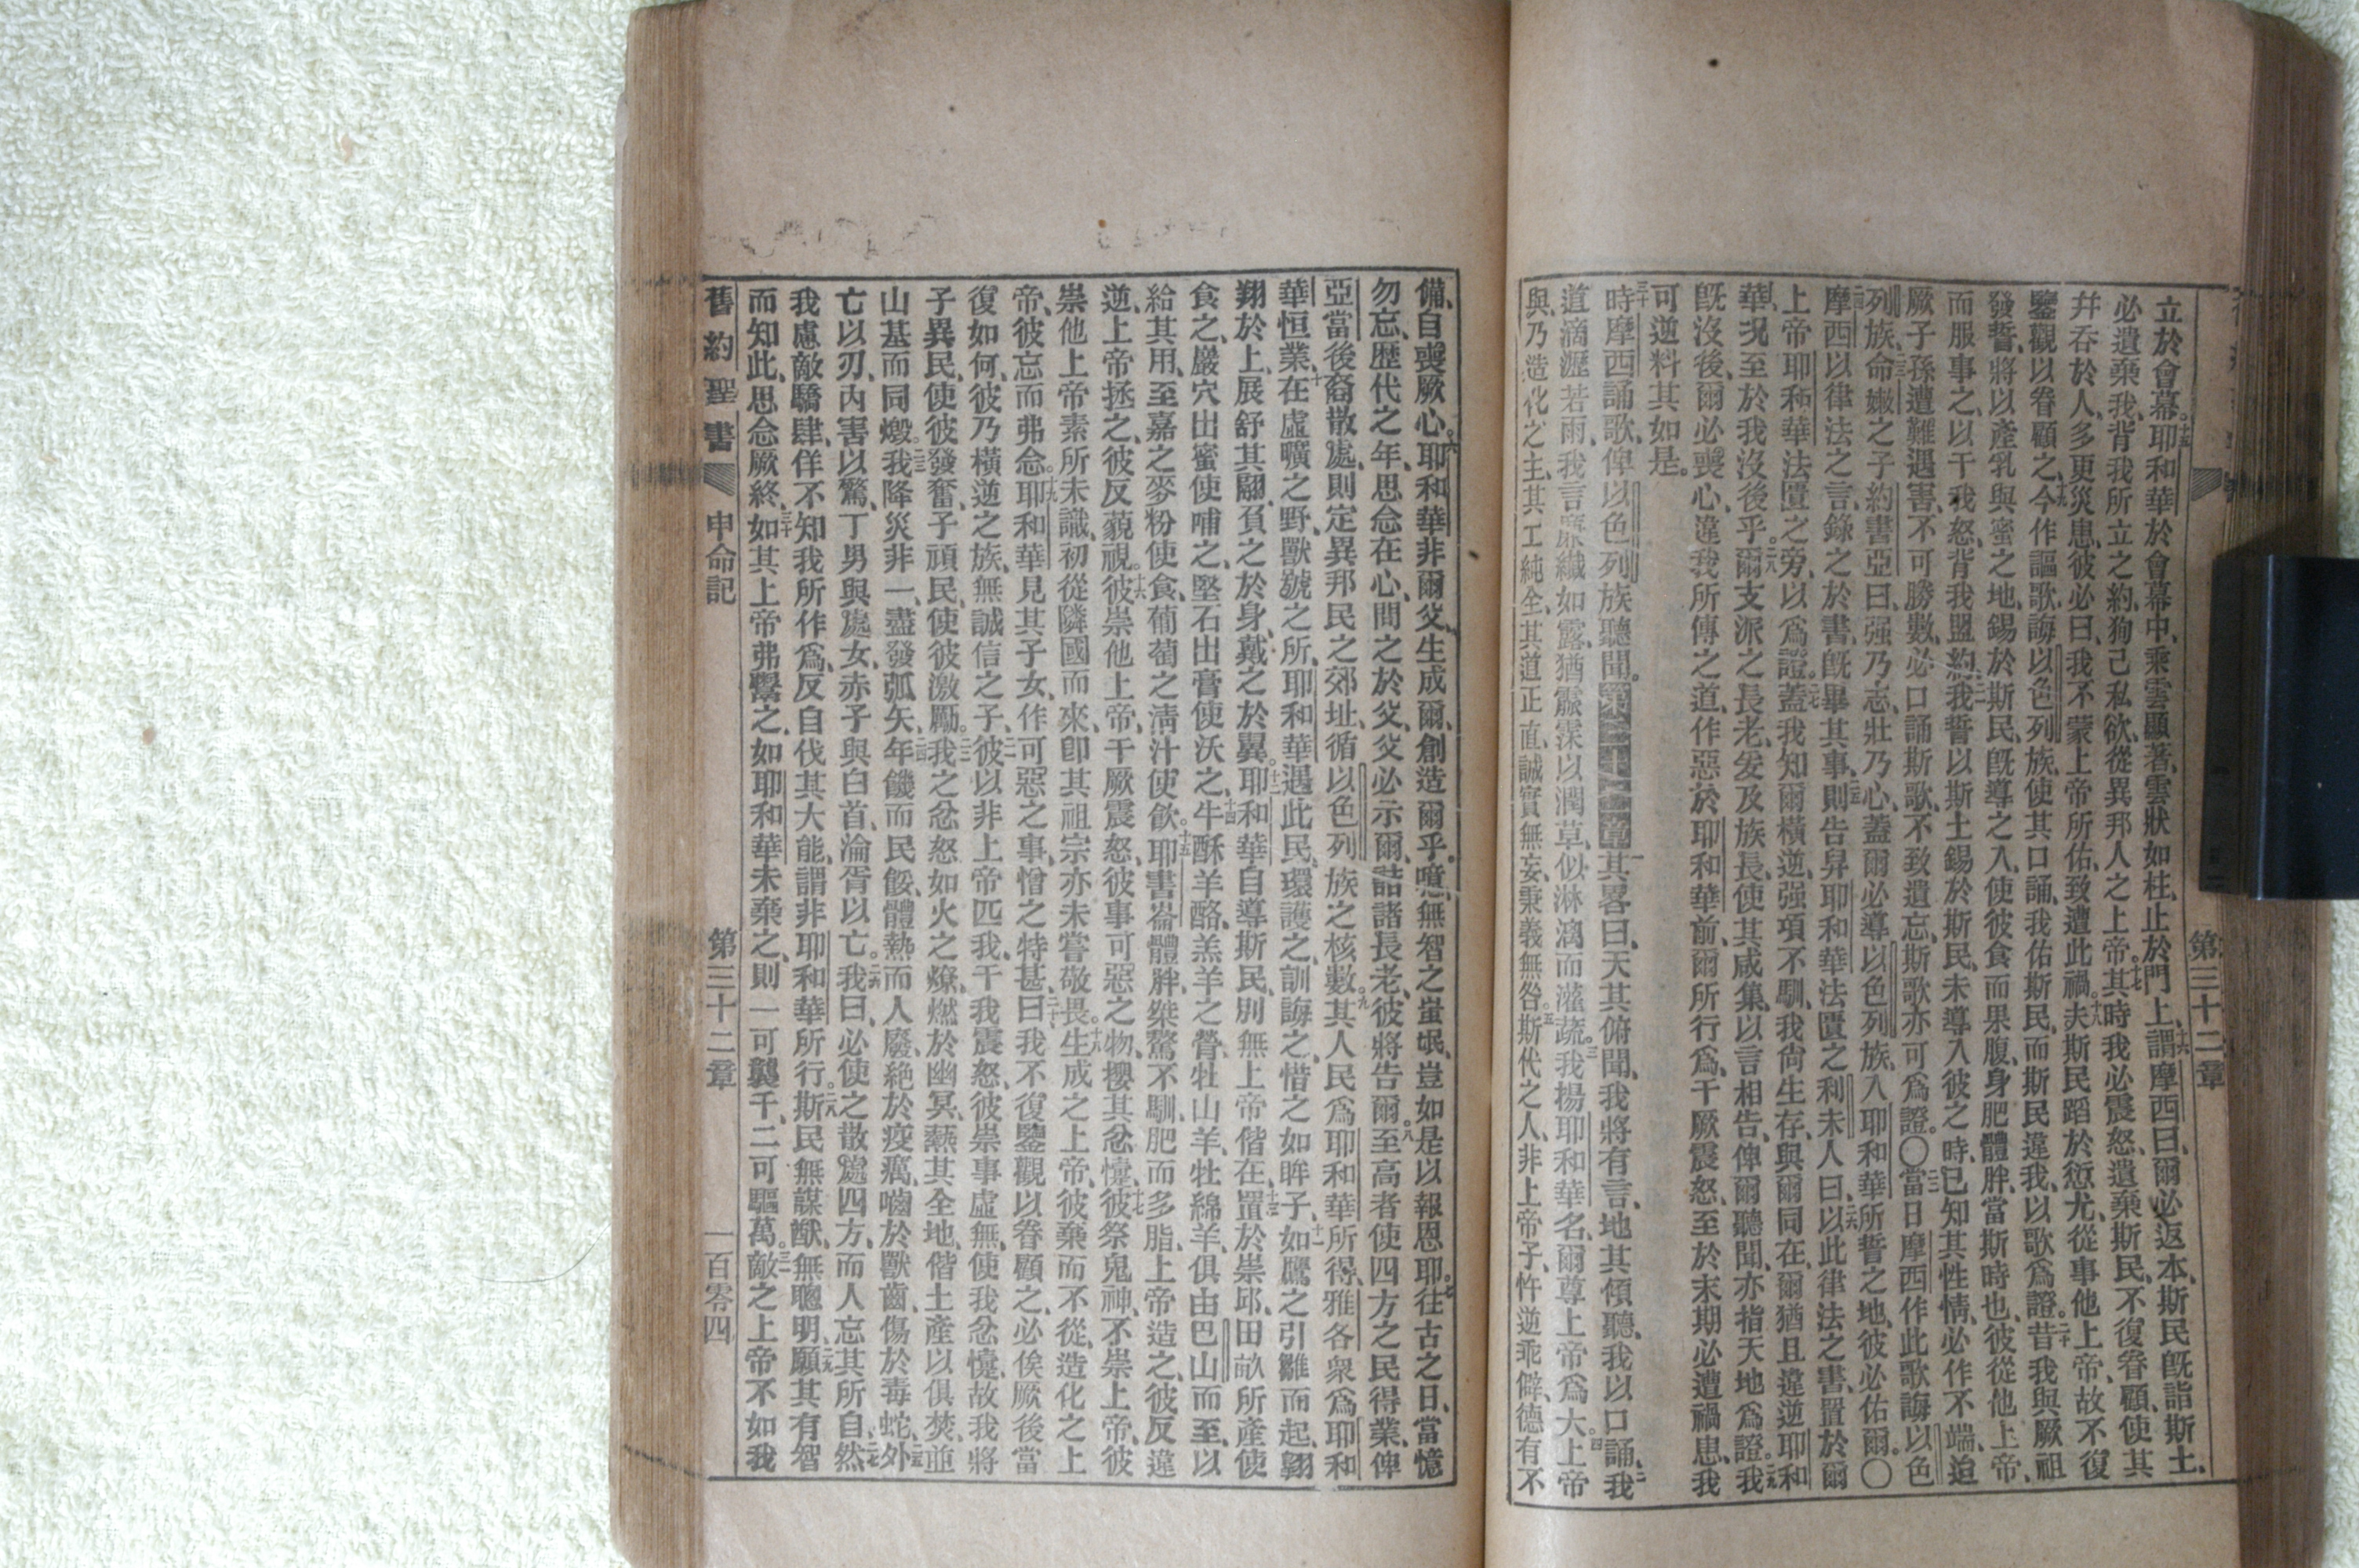 立於會幕、十五耶和華於會幕中、乘雲顯著、雲狀如柱、止於門上、十六謂摩西曰、爾必返本、斯民旣詣斯土、
必遺棄我、背我所立之約、狥己私欲、從異邦人之上帝、十七其時我必震怒、遺棄斯民、不復眷顧、使其
幷吞於人、多更災患、彼必曰、我不蒙上帝所佑、致遭此禍、十八夫斯民蹈於愆尤、從事他上帝、故不復
鑒觀以眷顧之、十九今作謳歌、誨以色列族、使其口誦、我佑斯民、而斯民違我、以歌爲證、二十昔我與厥祖
發誓、將以產乳與蜜之地、錫於斯民、旣導之入、使彼食而果腹、身肥體胖、當斯時也、彼從他上帝、
而服事之、以干我怒、背我盟約、二一我誓以斯土錫於斯民、未導入彼之時、已知其性情、必作不端、迨
厥子孫遭難遇害、不可勝數、必口誦斯歌、不致遺忘、斯歌亦可爲證、〇二二當日摩西作此歌、誨以色
列族、二三命嫩之子約書亞曰、强乃志、壯乃心、蓋爾必導以色列族、入耶和華所誓之地、彼必佑爾、〇
二四摩西以律法之言、錄之於書、旣畢其事、二五則告舁耶和華法匱之利未人曰、二六以此律法之書、置於爾
上帝耶和華法匱之旁、以爲證、二七蓋我知爾橫逆强項不馴、我尙生存、與爾同在、爾猶且違逆耶和
華、況至於我沒後乎、二八爾支派之長老、爰及族長、使其咸集、以言相告、俾爾聽聞、亦指天地爲證、二九我
旣沒後、爾必喪心、違我所傳之道、作惡於耶和華前、爾所行爲、干厥震怒、至於末期、必遭禍患、我
可逆料其如是。
三十時摩西誦歌、俾以色列族聽聞。第三十二章一其畧曰、天其俯聞、我將有言、地其傾聽、我以口誦、二我
道滴瀝若雨、我言廉纖如露、猶霢霂以潤草、似淋漓而灌蔬、三我揚耶和華名、爾尊上帝爲大、四上帝
與、乃造化之主、其工純全、其道正直、誠實無妄、秉義無咎、五斯代之人、非上帝子、忤逆乖僻、德有不
備、自喪厥心、六耶和華非爾父、生成爾、創造爾乎、噫、無智之蚩氓、豈如是以報恩耶、七往古之日、當憶
勿忘、歷代之年、思念在心、問之於父、父必示爾、詰諸長老、彼將告爾、八至高者使四方之民得業、俾
亞當後裔散處、則定異邦民之郊址、循以色列族之核數、九其人民爲耶和華所得、雅各衆爲耶和
華恒業、十在虛曠之野、獸號之所、耶和華遇此民、環護之、訓誨之、惜之如眸子、十一如鷹之引雛而起、翶
翔於上、展舒其翮、負之於身、戴之於翼、十二耶和華自導斯民、別無上帝偕在、十三置於崇邱、田畝所產使
食之、巖穴出蜜使哺之、堅石出膏使沃之、十四牛酥羊酪、羔羊之膋、牡山羊、牡綿羊、俱由巴山而至、以
給其用、至嘉之麥粉使食、葡萄之清汁使飮、十五耶書崙體胖、桀驁不馴、肥而多脂、上帝造之、彼反違
逆、上帝拯之、彼反藐視、十六彼崇他上帝、干厥震怒、彼事可惡之物、攖其忿懥、十七彼祭鬼神、不崇上帝、彼
崇他上帝、素所未識、初從隣國而來、卽其祖宗亦未嘗敬畏、十八生成之上帝、彼棄而不從、造化之上
帝、彼忘而弗念、十九耶和華見其子女、作可惡之事、憎之特甚、二十曰、我不復鑒觀以眷顧之、必俟厥後當
復如何、彼乃橫逆之族、無誠信之子、二一彼以非上帝匹我、干我震怒、彼崇事虛無、使我忿懥、故我將
子異民、使彼發奮、子頑民、使彼激勵、二二我之忿怒如火之燎、燃於幽冥、爇其全地、偕土產以俱焚、並
山基而同燬、二三我降災非一、盡發弧矢、二四年饑而民餒、體熱而人廢、絕於疫癘、嚙於獸齒、傷於毒蛇、二五外
亡以刃、內害以驚、丁男與處女、赤子與白首、淪胥以亡、二六我曰、必使之散處四方、而人忘其所自、二七然
我慮敵驕肆、佯不知我所作爲、反自伐其大能、謂非耶和華所行、二八斯民無謀猷、無聰明、二九願其有智
而知此、思念厥終、三十如其上帝弗鬻之、如耶和華未棄之、則一可襲千、二可驅萬、三一敵之上帝不如我
舊約聖書 申命記 第三十二章 一百零四
第三十二章